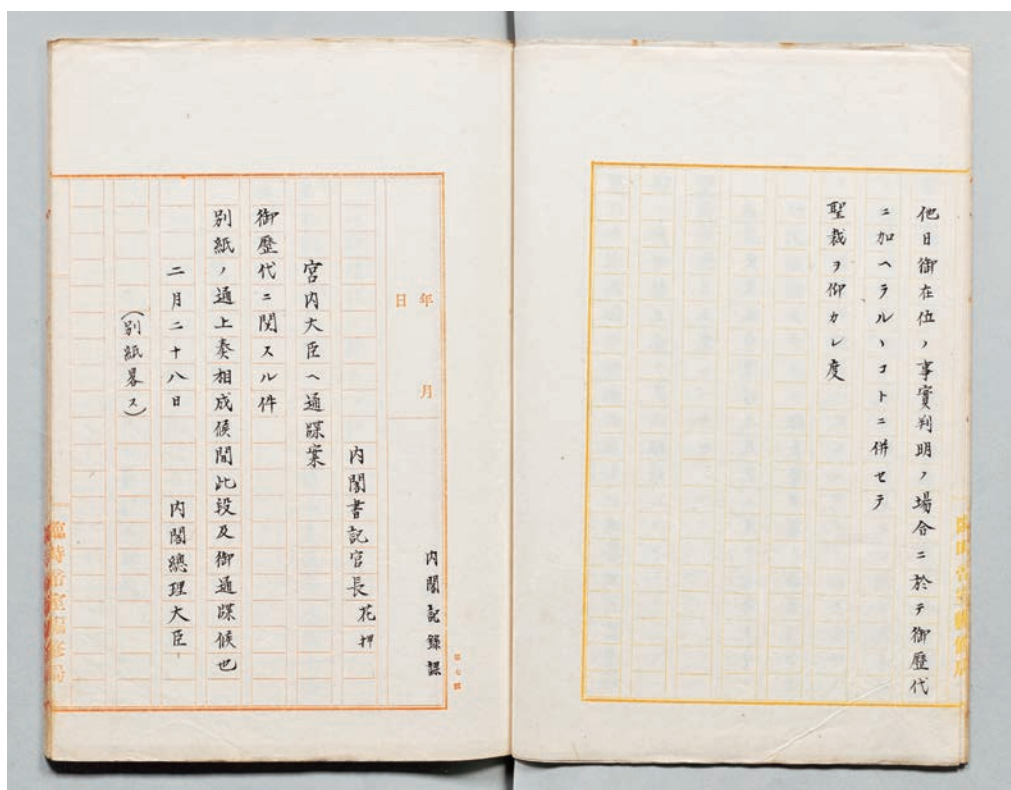 他日御在位ノ事實判明ノ場合ニ於テ御歴代
ニ加ヘラルヽコトニ併セテ
聖裁ヲ仰カレ度
内閣記録課
年 月 日
第七號
内閣書記官長花押
宮内大臣ヘ通牒案
御歴代ニ関スル件
別紙ノ通上奏相成候間此段及御通牒候也
二月二十八日 内閣總理大臣
(別紙畧ス)
臨時帝室編修局